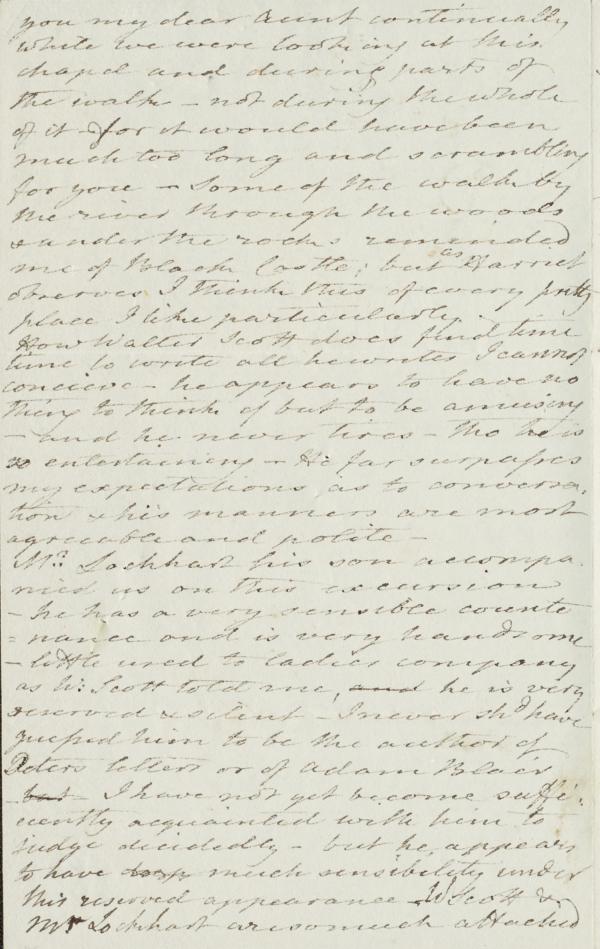 you my dear Aunt continually
while we were looking at this
chapel and during parts of
the walk – not during the whole
of it – for it would have been
much too long and scrambling
for you – Some of the walk by
the river through the woods
& under the rocks reminded
me of Black Castle; but as Harriet
observes I think this of every pretty
place I like particularly.
How Walter Scott does find time
time to write all he writes I cannot
conceive – he appears to have no
thing to think of but to be amusing
– and he never tires – tho he is
so entertaining – He far surpasses
my expectations as to conversa-
tion & his manners are most
agreeable and polite –
Mr. Lockhart his son accompa-
nied us on this excursion
– he has a very sensible counte
= nance and is very handsome
– little used to ladies company
as W: Scott told me, and he is very
reserved & silent – I never shd have
guessed him to be the author of
Peters letters or of Adam Blair
but – I have not yet become suffi-
ciently acquainted with him to
judge decidedly – but he appears
to have much sensibility under
this reserved appearance W Scott &
Mr Lockhart are so much attached